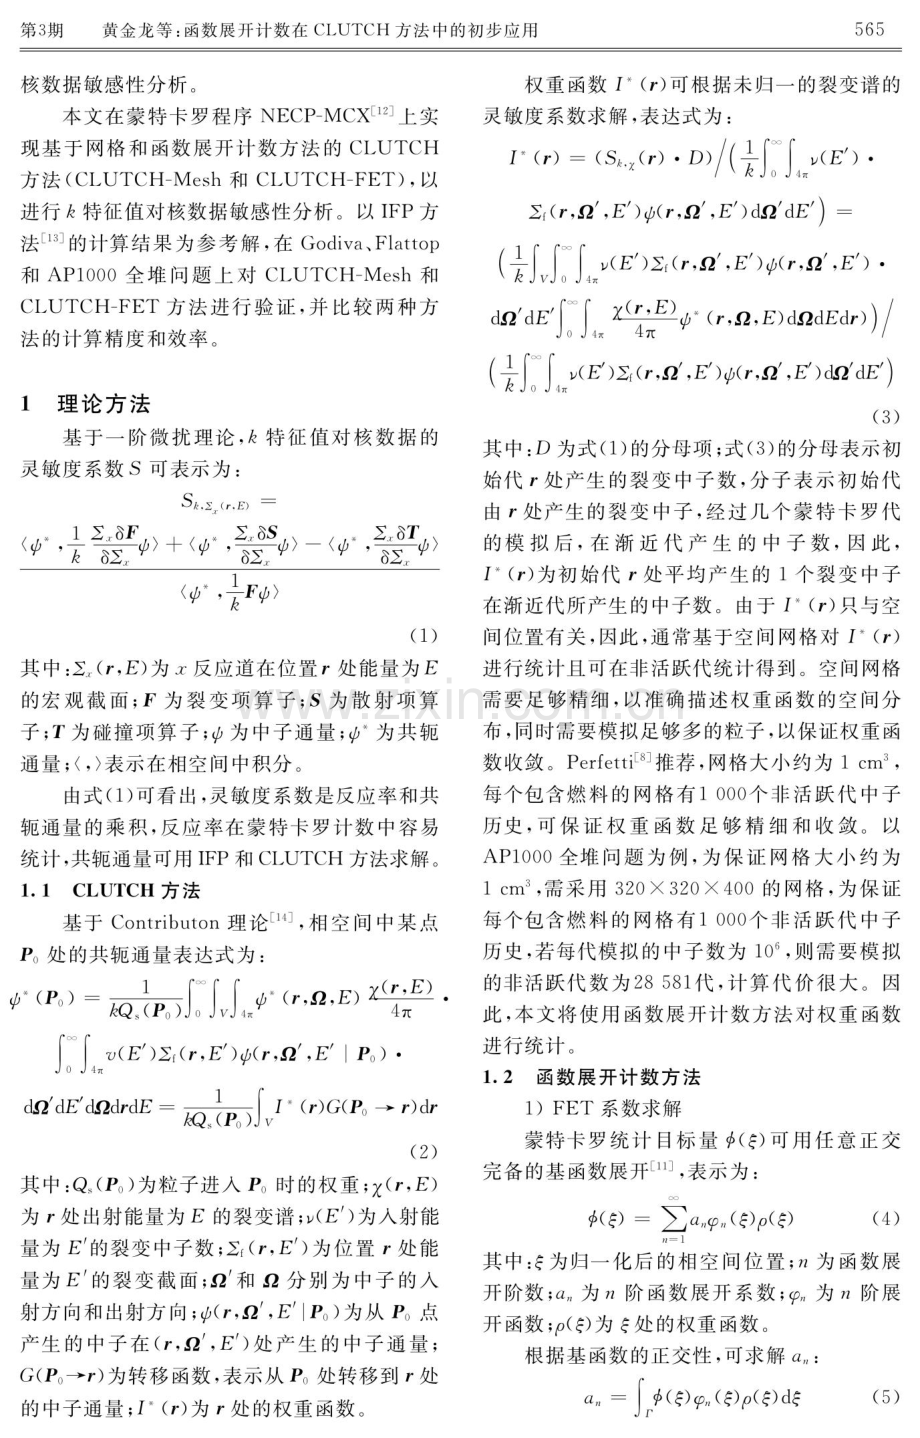 第3期 黄金龙等:函数展开计数在 CLUTCH 方法中的初步应用 565
核数据敏感性分析。
本文在蒙特卡罗程序 NECP-MCX[12]上实
现基于网格和函数展开计数方法的 CLUTCH
方法(CLUTCH-Mesh 和 CLUTCH-FET),以
进行 k 特征值对核数据敏感性分析。以 IFP 方
法[13]的计算结果为参考解,在 Godiva、Flattop
和 AP1000 全堆问题上对 CLUTCH-Mesh 和
CLUTCH-FET 方法进行验证,并比较两种方
法的计算精度和效率。
1 理论方法
基于一阶微扰理论,k 特征值对核数据的
灵敏度系数 S 可表示为:
S_{k,Σ_x(r,E)} =
(⟨ψ*, (1/k)(Σ_xδF/δΣ_x)ψ⟩ + ⟨ψ*, (Σ_xδS/δΣ_x)ψ⟩ − ⟨ψ*, (Σ_xδT/δΣ_x)ψ⟩)
/ ⟨ψ*, (1/k)Fψ⟩
(1)
其中:Σ_x(r,E)为 x 反应道在位置 r 处能量为 E
的宏观截面;F 为裂变项算子;S 为散射项算
子;T 为碰撞项算子;ψ 为中子通量;ψ* 为共轭
通量;⟨,⟩表示在相空间中积分。
由式(1)可看出,灵敏度系数是反应率和共
轭通量的乘积,反应率在蒙特卡罗计数中容易
统计,共轭通量可用 IFP 和 CLUTCH 方法求解。
1.1 CLUTCH 方法
基于 Contributon 理论[14],相空间中某点
P₀ 处的共轭通量表达式为:
ψ*(P₀) = 1/(kQ_s(P₀)) ∫_0^∞ ∫_V ∫_{4π} ψ*(r,Ω,E) χ(r,E)/4π •
∫_0^∞ ∫_{4π} υ(E′)Σ_f(r,E′)ψ(r,Ω′,E′ | P₀) •
dΩ′dE′dΩdrdE = 1/(kQ_s(P₀)) ∫_V I*(r)G(P₀ → r)dr
(2)
其中:Q_s(P₀)为粒子进入 P₀ 时的权重;χ(r,E)
为 r 处出射能量为 E 的裂变谱;ν(E′)为入射能
量为 E′的裂变中子数;Σ_f(r,E′)为位置 r 处能
量为 E′的裂变截面;Ω′和 Ω 分别为中子的入
射方向和出射方向;ψ(r,Ω′,E′|P₀)为从 P₀ 点
产生的中子在(r,Ω′,E′)处产生的中子通量;
G(P₀→r)为转移函数,表示从 P₀ 处转移到 r 处
的中子通量;I*(r)为 r 处的权重函数。
权重函数 I*(r)可根据未归一的裂变谱的
灵敏度系数求解,表达式为:
I*(r) = (S_{k,χ}(r) • D)/(1/k ∫_0^∞ ∫_{4π} ν(E′) •
Σ_f(r,Ω′,E′)ψ(r,Ω′,E′)dΩ′dE′) =
(1/k ∫_V ∫_0^∞ ∫_{4π} ν(E′)Σ_f(r,Ω′,E′)ψ(r,Ω′,E′) •
dΩ′dE′ ∫_0^∞ ∫_{4π} χ(r,E)/4π ψ*(r,Ω,E)dΩdEdr))/
(1/k ∫_0^∞ ∫_{4π} ν(E′)Σ_f(r,Ω′,E′)ψ(r,Ω′,E′)dΩ′dE′)
(3)
其中:D 为式(1)的分母项;式(3)的分母表示初
始代 r 处产生的裂变中子数,分子表示初始代
由 r 处产生的裂变中子,经过几个蒙特卡罗代
的模拟后,在渐近代产生的中子数,因此,
I*(r)为初始代 r 处平均产生的 1 个裂变中子
在渐近代所产生的中子数。由于 I*(r)只与空
间位置有关,因此,通常基于空间网格对 I*(r)
进行统计且可在非活跃代统计得到。空间网格
需要足够精细,以准确描述权重函数的空间分
布,同时需要模拟足够多的粒子,以保证权重函
数收敛。Perfetti[8]推荐,网格大小约为 1 cm³,
每个包含燃料的网格有1 000个非活跃代中子
历史,可保证权重函数足够精细和收敛。以
AP1000 全堆问题为例,为保证网格大小约为
1 cm³,需采用 320×320×400 的网格,为保证
每个包含燃料的网格有1 000个非活跃代中子
历史,若每代模拟的中子数为 10⁶,则需要模拟
的非活跃代数为28 581代,计算代价很大。因
此,本文将使用函数展开计数方法对权重函数
进行统计。
1.2 函数展开计数方法
1) FET 系数求解
蒙特卡罗统计目标量 ϕ(ξ)可用任意正交
完备的基函数展开[11],表示为:
ϕ(ξ) = ∑_{n=1}^∞ a_nφ_n(ξ)ρ(ξ) (4)
其中:ξ 为归一化后的相空间位置;n 为函数展
开阶数;a_n 为 n 阶函数展开系数;φ_n 为 n 阶展
开函数;ρ(ξ)为 ξ 处的权重函数。
根据基函数的正交性,可求解 a_n:
a_n = ∫_Γ ϕ(ξ)φ_n(ξ)ρ(ξ)dξ (5)
www.zixin.com.cn